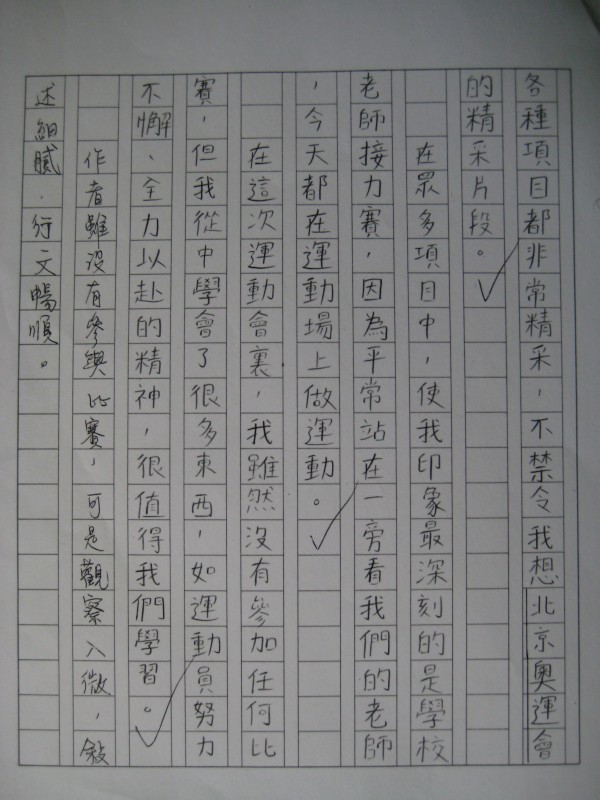 各種項目都非常精采，不禁令我想北京奧運會
的精采片段。
在眾多項目中，使我印象最深刻的是學校
老師接力賽，因為平常站在一旁看我們的老師
，今天都在運動場上做運動。
在這次運動會裏，我雖然沒有參加任何比
賽，但我從中學會了很多東西，如運動員努力
不懈、全力以赴的精神，很值得我們學習。
作者雖沒有參與比賽，可是觀察入微，敍
述細膩．行文暢順。